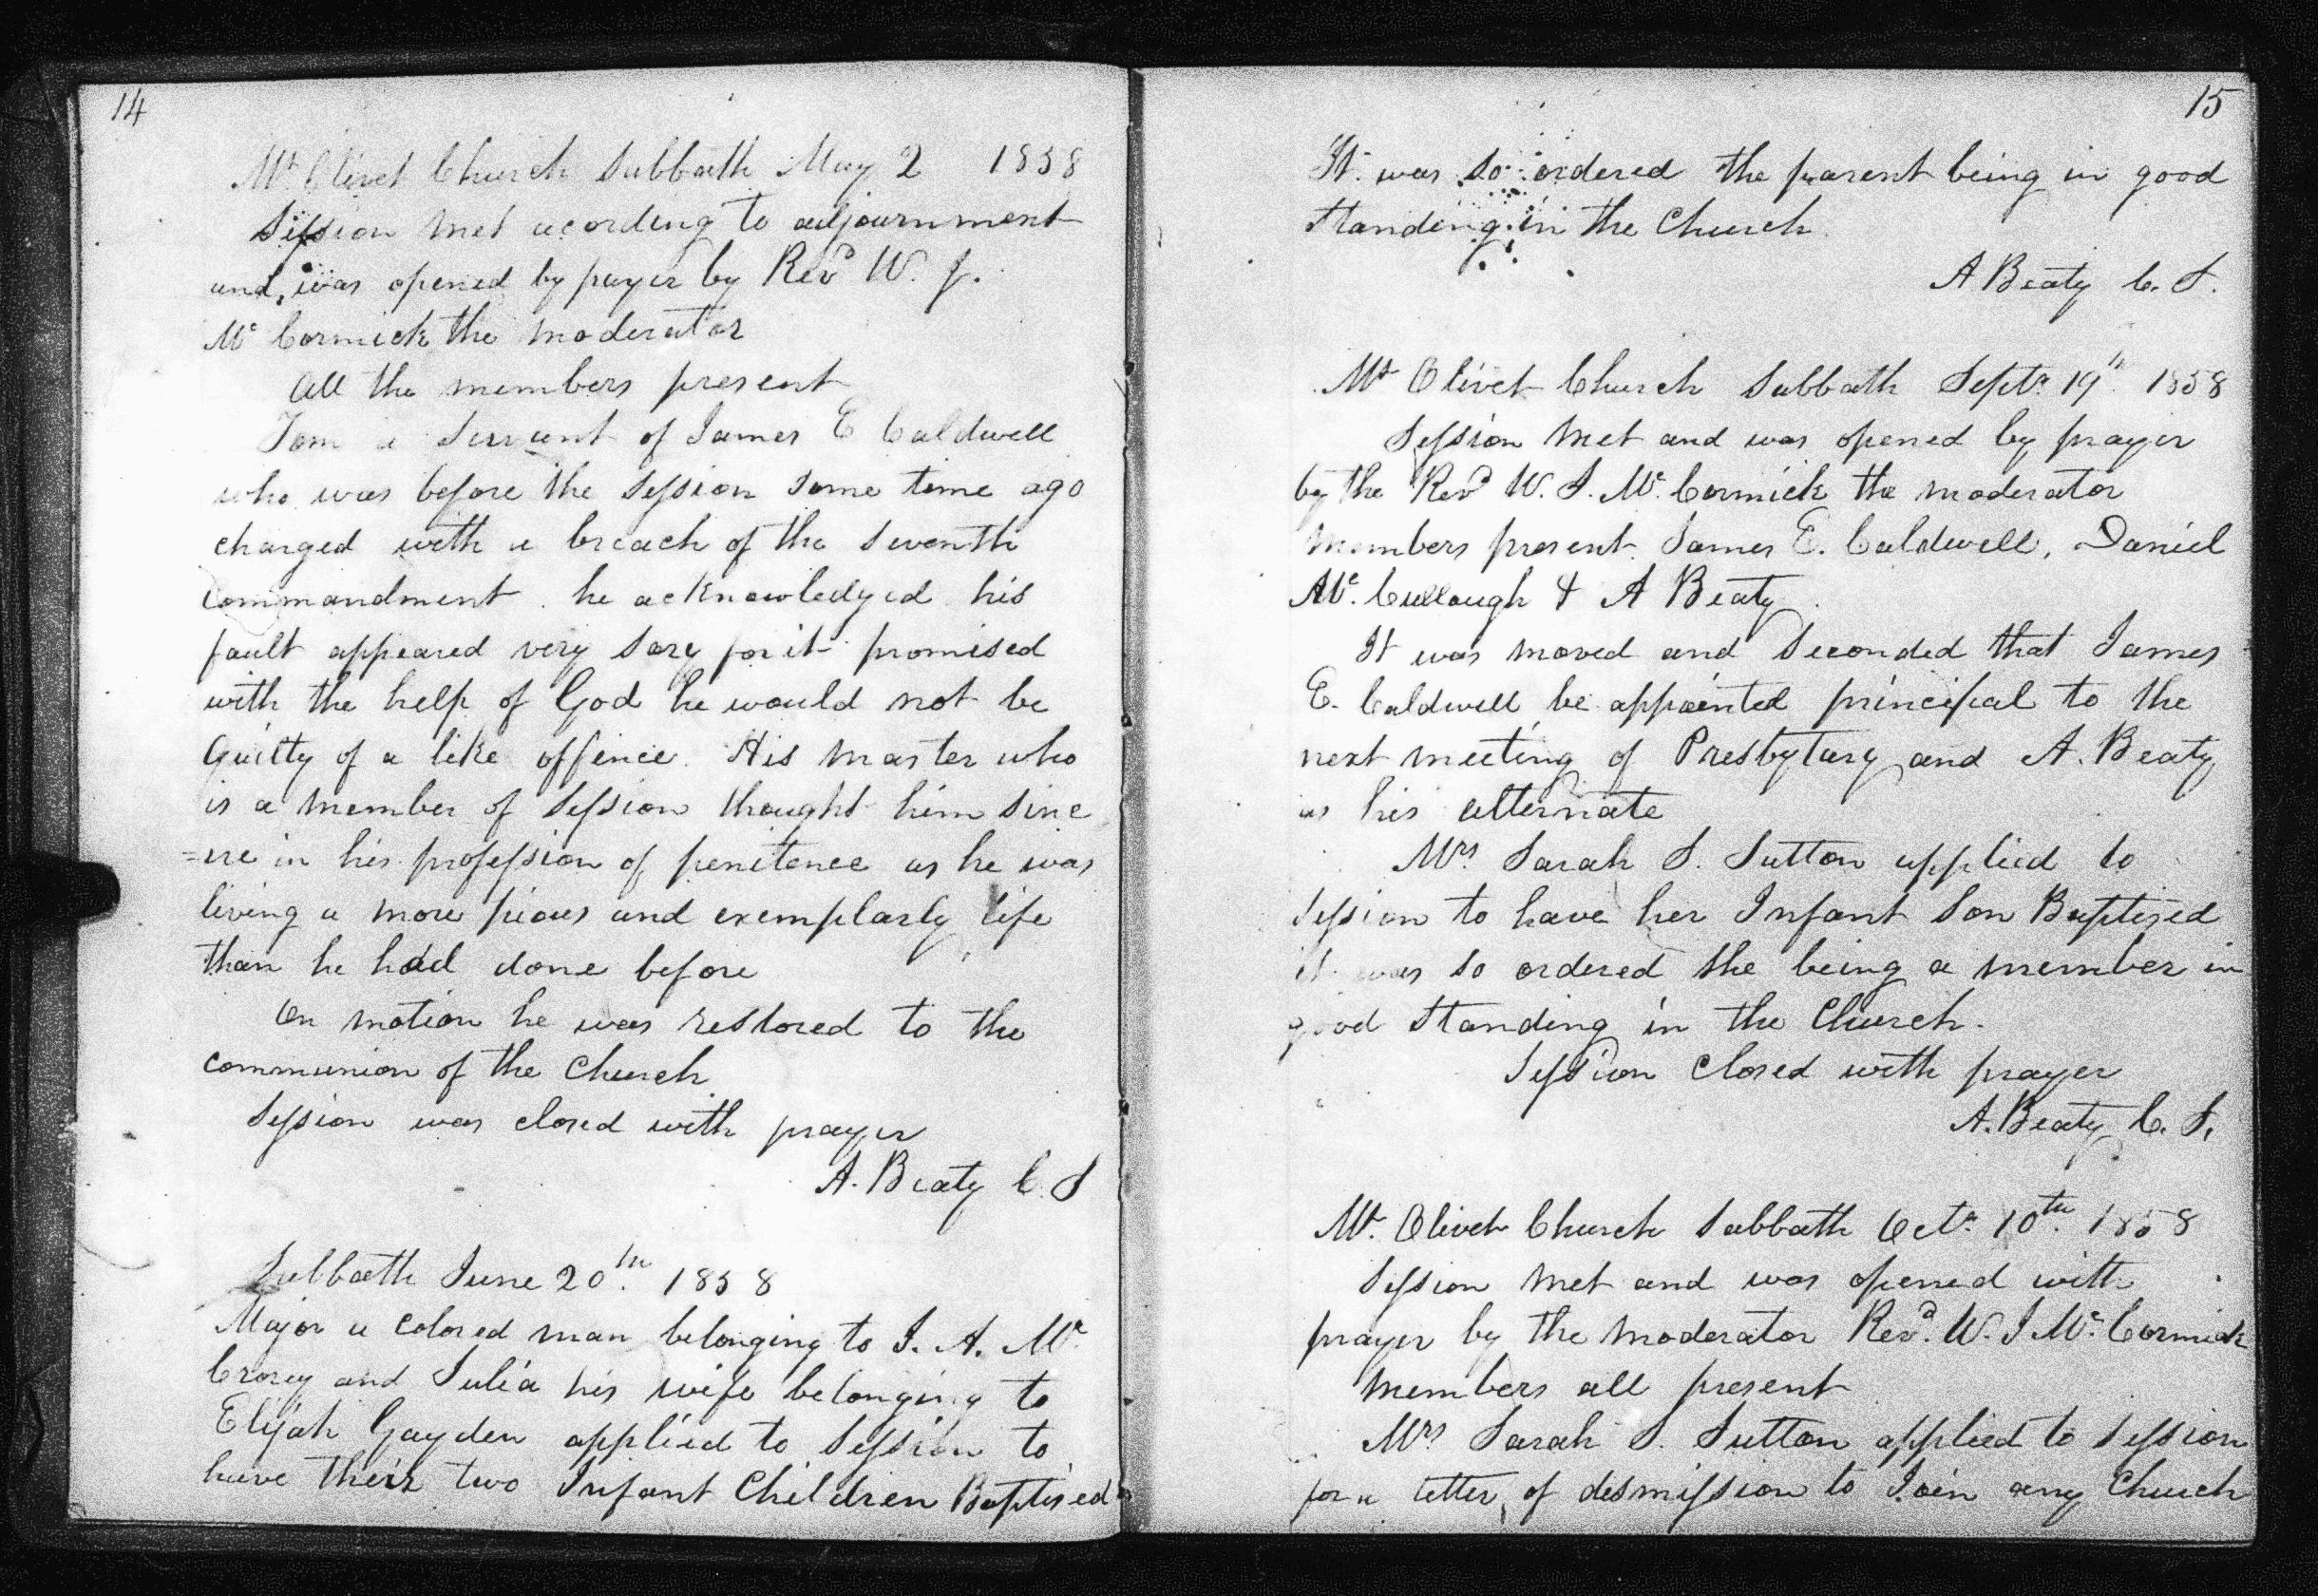 14
Mt Olivet Church Sabbath May 2 1858
Session met acording to adjournment
and was opened by prayer by Revd W. J.
Mc Cormick the moderator
All the members present
Tom a Servant of James E Caldwell
who was before the Session Some time ago
charged with a breach of the Seventh
Commandment. he acknowledged his
fault appeared very Sory for it promised
with the help of God he would not be
Guilty of a like offence. His Master who
is a member of Session thought him Sinc
=ere in his profession of penitence as he was
living a more pious and exemplarly life
than he had done before
On motion he was restored to the
communion of the Church
Session was closed with prayer
A. Beaty C. S
Sabbath June 20th. 1858
Major a Colored man belonging to J. A. Mc
Crorey and Julia his wife belonging to
Elijah Gayden applied to Session to
have their two Infant Children Baptised
15
It was So ordered the parent being in good
Standing in the Church
A Beaty C. S.
Mt Olivet Church Sabbath Sept. 19th 1858
Session Met and was opened by prayer
by the Revd W. J. Mc. Cormick the moderator
Members present James E. Caldwell, Daniel
Mc. Cullough & A Beaty
It was moved and Seconded that James
E. Caldwell be appointed principal to the
next meeting of Presbytary and A. Beaty
as his alternate
Mrs Sarah S. Sutton applied to
Session to have her Infant Son Baptized
it was So ordered She being a member in
good Standing in the Church.
Session Closed with prayer
A. Beaty C. S.
Mt. Olivet Church Sabbath Oct. 10th. 1858
Session Met and was opened with
prayer by the Moderator Revd. W. J Mc. Cormick
Members all present
Mrs Sarah S. Sutton applied to Session
for a letter of desmission to Join any Church